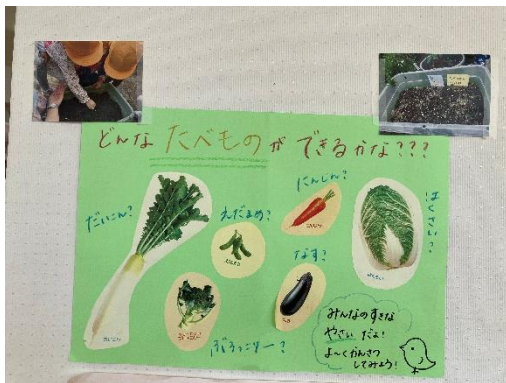 どんな たべもの が できるかな???
だいこん?
えだまめ?
にんじん?
はくさい?
なす?
ぶろっこりー?
みんなのすきな
やさい だよ!
よ〜くかんさつ
してみよう!